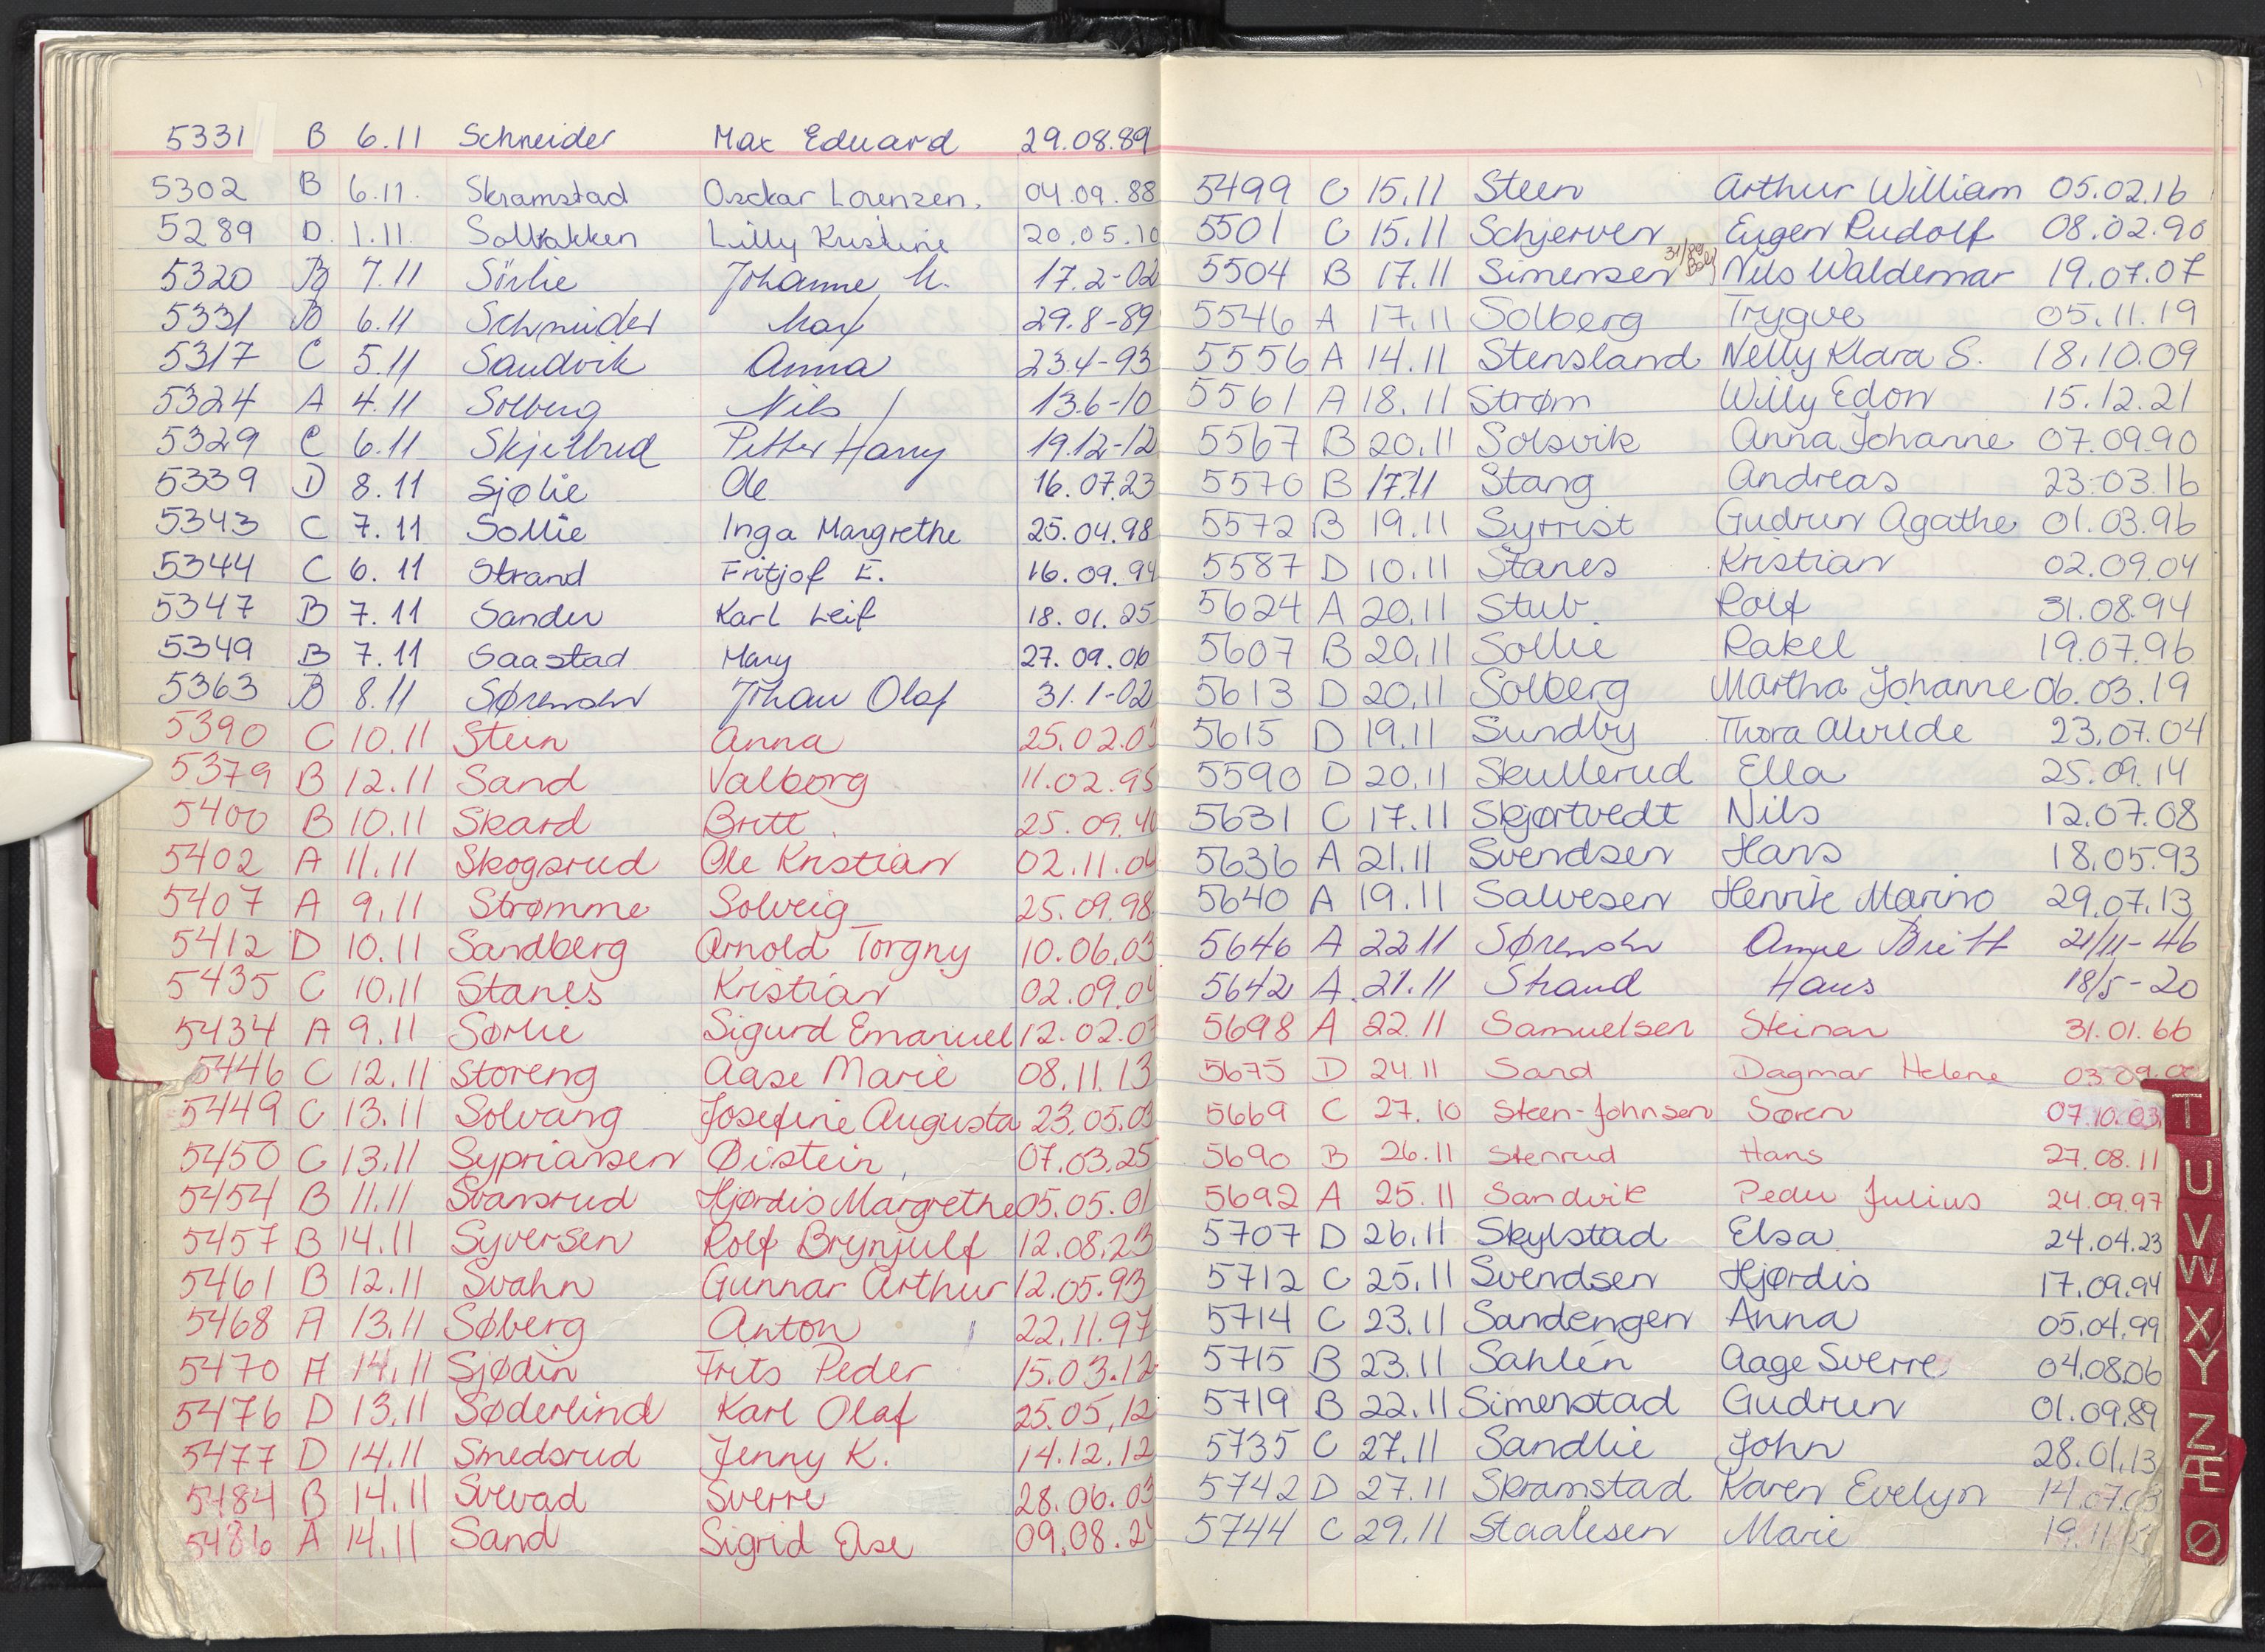 5331 B 6.11 Schneider Max Eduard 29.08.89
5302 B 6.11. Skramstad Osckar Lorenzen. 04.09.88
5289 D. 1.11. Solbakken Lilly Kristine 20.05.10
5320 B 7.11 Sörlie Johanne M. 17.2-02
5331 B 6.11 Schneider Max 29.8-89
5317 C 5.11 Sandvik Anna 23.4-93
5324 A 4.11 Solberg Nils 13.6-10
5329 C 6.11 Skjellrud Petter Harry 19.12-12
5339 D 8.11 Sjølie Ole 16.07.23
5343 C 7.11 Sollie Inga Margrethe 25.04.98
5344 C 6.11 Strand Fritjof E. 16.09.94
5347 B 7.11 Sander Karl Leif 18.01.25
5349 B 7.11 Saastad Mary 27.09.06
5363 B 8.11 Sørensen Johan Olaf 31.1-02
5390 C 10.11 Stein Anna 25.02.03
5379 B 12.11 Sand Valborg 11.02.95
5400 B 10.11 Skard Britt 25.09.40
5402 A 11.11 Skogsrud Ole Kristian 02.11.04
5407 A 9.11 Strømme Solveig 25.09.98
5412 D 10.11 Sandberg Arnold Torgny 10.06.03
5435 C 10.11 Stanes Kristian 02.09.04
5434 A 9.11 Sørlie Sigurd Emanuel 12.02.07
5446 C 12.11 Storeng Aase Marie 08.11.13
5449 C 13.11 Solvang Josefine Augusta 23.05.03
5450 C 13.11 Sypriansen Øistein 07.03.25
5454 B 11.11 Svansrud Hjørdis Margrethe 05.05.01
5457 B 14.11 Syversen Rolf Brynjulf 12.08.23
5461 B 12.11 Svahn Gunnar Arthur 12.05.93
5468 A 13.11 Søberg Anton 22.11.97
5470 A 14.11 Sjødin Frits Peder 15.03.12
5476 D 13.11 Søderlind Karl Olaf 25.05.12
5477 D 14.11 Smedsrud Jenny K. 14.12.12
5484 B 14.11 Svevad Sverre 28.06.03
5486 A 14.11 Sand Sigrid Else 09.08.24
5499 C 15.11 Steen Arthur William 05.02.16
5501 C 15.11 Schjerven Eugen Rudolf 08.02.90
5504 B 17.11 Simensen Nils Waldemar 19.07.07
5546 A 17.11 Solberg Trygve 05.11.19
5556 A 14.11 Stensland Nelly Klara S. 18.10.09
5561 A 18.11 Strøm Willy Edon 15.12.21
5567 B 20.11 Solsvik Anna Johanne 07.09.90
5570 B 17.11 Stang Andreas 23.03.16
5572 B 19.11 Syrrist Gudrun Agathe 01.03.96
5587 D 10.11 Stanes Kristian 02.09.04
5624 A 20.11 Stub Rolf 31.08.94
5607 B 20.11 Sollie Rakel 19.07.96
5613 D 20.11 Solberg Martha Johanne 06.03.19
5615 D 19.11 Sundby Thora Alvilde 23.07.04
5590 D 20.11 Skullerud Ella 25.09.14
5631 C 17.11 Skjørtvedt Nils 12.07.08
5636 A 21.11 Svendsen Hans 18.05.93
5640 A 19.11 Salvesen Henrik Marino 29.07.13
5646 A 22.11 Sørensen Anne Britt 21/11-46
5642 A. 21.11 Strand Hans 18/5-20
5698 A 22.11 Samuelsen Steinar 31.01.66
5675 D 24.11 Sand Dagmar Helene 03.09.00
5669 C 27.10 Steen-Johnsen Søren 07.10.03
5690 B 26.11 Stenrud Hans 27.08.11
5692 A 25.11 Sandvik Peder Julius 24.09.97
5707 D 26.11 Skylstad Elsa 24.04.23
5712 C 25.11 Svendsen Hjørdis 17.09.94
5714 C 23.11 Sandengen Anna 05.04.99
5715 B 23.11 Sahlén Aage Sverre 04.08.06
5719 B 22.11 Simenstad Gudrun 01.09.89
5735 C 27.11 Sandlie John 28.01.13
5742 D 27.11 Skramstad Karen Evelyn 14.07.03
5744 C 29.11 Staalesen Marie
T
U
V
W
X
Y
Z
Æ
Ø